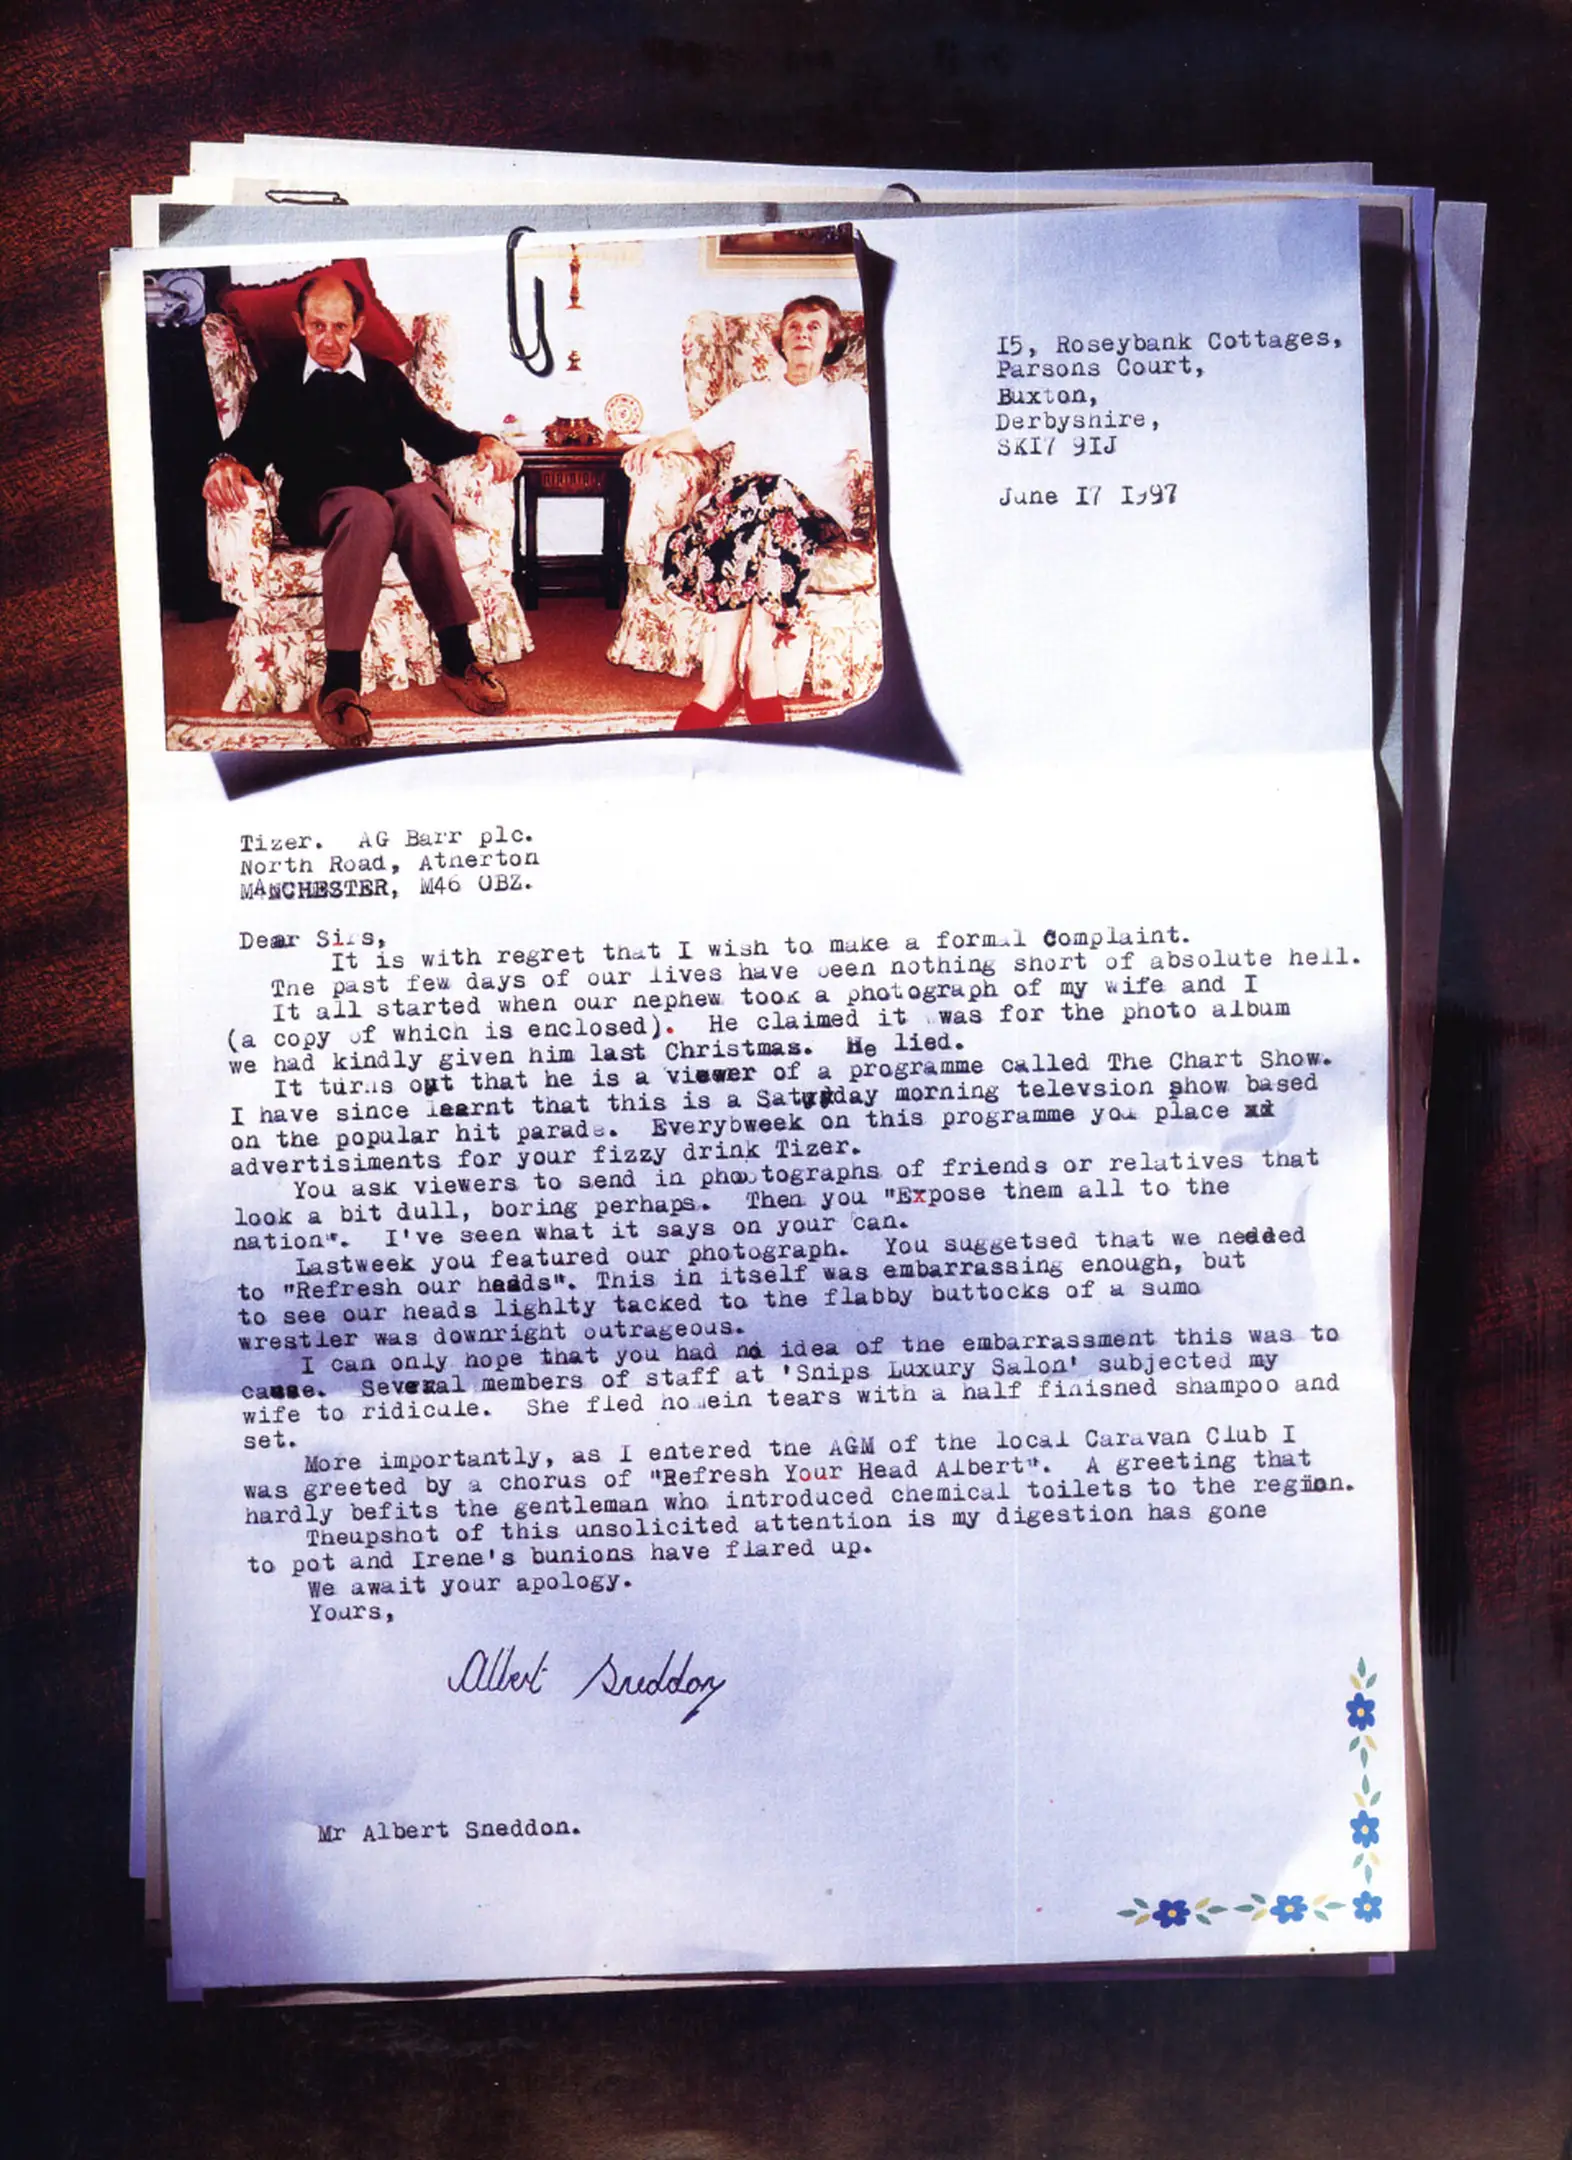 I5, Roseybank Cottages,
Parsons Court,
Buxton,
Derbyshire,
SKI7 9IJ
June I7 I997
Tizer. AG Barr plc.
North Road, Atherton
MANCHESTER, M46 OBZ.
Dear Sirs,
It is with regret that I wish to make a formal Complaint.
The past few days of our lives have been nothing short of absolute hell.
It all started when our nephew took a photograph of my wife and I
(a copy of which is enclosed). He claimed it was for the photo album
we had kindly given him last Christmas. He lied.
It turns out that he is a viewer of a programme called The Chart Show.
I have since learnt that this is a Saturday morning televsion show based
on the popular hit parade. Everybweek on this programme you place
advertisiments for your fizzy drink Tizer.
You ask viewers to send in photographs of friends or relatives that
look a bit dull, boring perhaps. Then you "Expose them all to the
nation". I've seen what it says on your can.
Lastweek you featured our photograph. You suggetsed that we nedded
to "Refresh our heads". This in itself was embarrassing enough, but
to see our heads lighlty tacked to the flabby buttocks of a sumo
wrestler was downright outrageous.
I can only hope that you had no idea of the embarrassment this was to
cause. Several members of staff at 'Snips Luxury Salon' subjected my
wife to ridicule. She fled homein tears with a half finished shampoo and
set.
More importantly, as I entered the AGM of the local Caravan Club I
was greeted by a chorus of "Refresh Your Head Albert". A greeting that
hardly befits the gentleman who introduced chemical toilets to the region.
Theupshot of this unsolicited attention is my digestion has gone
to pot and Irene's bunions have flared up.
We await your apology.
Yours,
Albert Sneddon
Mr Albert Sneddon.